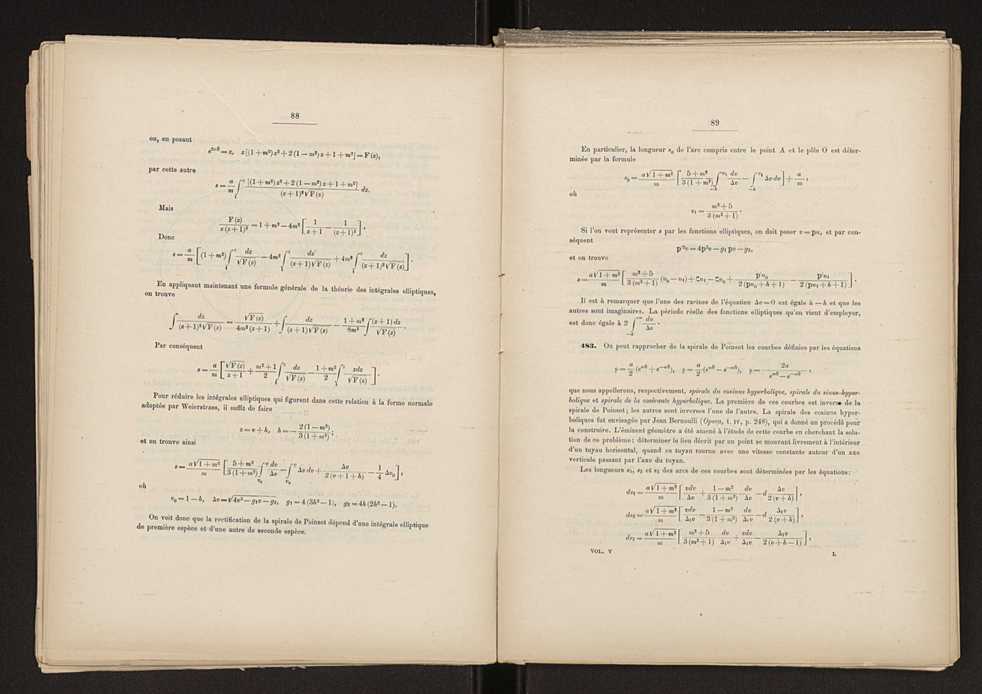 88
ou, en posant
e^{2mθ} = z, z [(1 + m²) z² + 2 (1 — m²) z + 1 + m²] = F (z),
par cette autre
s = a/m ∫ [(1 + m²) z² + 2 (1 — m²) z + 1 + m²] / (z + 1)² √F (z) dz.
Mais
F (z) / z (z + 1)² = 1 + m² — 4m² [1 / z + 1 — 1 / (z + 1)²],
Donc
s = a/m [(1 + m²) ∫ dz / √F (z) — 4m² ∫ dz / (z + 1) √F (z) + 4m² ∫ dz / (z + 1)² √F (z)].
En appliquant maintenant une formule générale de la théorie des intégrales elliptiques,
on trouve
∫ dz / (z + 1)² √F (z) = √F (z) / 4m² (z + 1) + ∫ dz / (z + 1) √F (z) — 1 + m² / 8m² ∫ (z + 1) dz / √F (z).
Par conséquent
s = a/m [√F (z) / z + 1 + m² + 1 / 2 ∫ dz / √F (z) — 1 + m² / 2 ∫ zdz / √F (z)].
Pour réduire les intégrales elliptiques qui figurent dans cette relation à la forme normale
adoptée par Weierstrass, il suffit de faire
z = v + h, h = — 2 (1 — m²) / 3 (1 + m²),
et on trouve ainsi
s = a √1 + m² / m [5 + m² / 3 (1 + m²) ∫ dv / Δv — ∫ Δv dv + Δv / 2 (v + 1 + h) — 1/4 Δv₀],
où
v₀ = 1 — h, Δv = √4v³ — g₂v — g₃, g₂ = 4 (3h² — 1), g₃ = 4h (2h² — 1).
On voit donc que la rectification de la spirale de Poinsot dépend d'une intégrale elliptique
de première espèce et d'une autre de seconde espèce.
89
En particulier, la longueur s₀ de l'arc compris entre le point A et le pôle O est déter-
minée par la formule
s₀ = a √1 + m² / m [5 + m² / 3 (1 + m²) ∫ dv / Δv — ∫ Δv dv] + a/m,
où
v₁ = m² + 5 / 3 (m² + 1).
Si l'on veut représenter s par les fonctions elliptiques, on doit poser v = pu, et par con-
séquent
p'²u = 4p³u — g₂ pu — g₃,
et on trouve
s = a √1 + m² / m [m² + 5 / 3 (m² + 1) (u₀ — u₁) + ζu₁ — ζu₀ + p'u₀ / 2 (pu₀ + h + 1) — p'u₁ / 2 (pu₁ + h + 1)].
Il est à remarquer que l'une des racines de l'équation Δv = 0 est égale à — h et que les
autres sont imaginaires. La période réelle des fonctions elliptiques qu'on vient d'employer,
est donc égale à 2 ∫ dv / Δv.
483. On peut rapprocher de la spirale de Poinsot les courbes définies par les équations
ρ = a/2 (e^{mθ} + e^{—mθ}), ρ = a/2 (e^{mθ} — e^{—mθ}), ρ = 2a / e^{mθ} — e^{—mθ},
que nous appellerons, respectivement, spirale du cosinus hyperbolique, spirale du sinus-hyper-
bolique et spirale de la cosécante hyperbolique. La première de ces courbes est inverse de la
spirale de Poinsot; les autres sont inverses l'une de l'autre. La spirale des cosinus hyper-
boliques fut envisagée par Jean Bernoulli (Opera, t. IV, p. 248), qui a donné un procédé pour
la construire. L'éminent géomètre a été amené à l'étude de cette courbe en cherchant la solu-
tion de ce problème: déterminer le lieu décrit par un point se mouvant livrement à l'intérieur
d'un tuyau horizontal, quand ce tuyau tourne avec une vitesse constante autour d'un axe
verticale passant par l'axe du tuyau.
Les longueurs s₁, s₂ et s₃ des arcs de ces courbes sont déterminées par les équations:
ds₁ = a √1 + m² / m [vdv / Δv + 1 — m² / 3 (1 + m²) dv / Δv — d Δv / 2 (v + h)],
ds₂ = a √1 + m² / m [vdv / Δ₁v — 1 — m² / 3 (1 + m²) dv / Δ₁v — d Δ₁v / 2 (v + h)],
ds₃ = a √1 + m² / m [m² + 5 / 3 (m² + 1) dv / Δ₁v + vdv / Δ₁v — Δ₁v / 2 (v + h — 1)],
VOL. V L